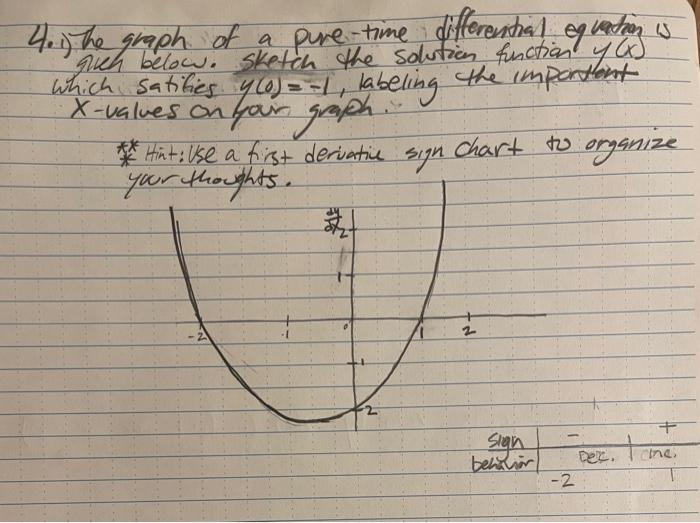 4. i) The graph of a pure-time differential equation is
given below. Sketch the solution function y(x)
which satifies y(0) = -1, labeling the important
X-values on your graph.
** Hint: Use a first derivative sign chart to organize
* your thoughts.
dy/dx
2
1
-2 -1 0 1 2
-1
-2
sign - +
behavior Dec. inc.
-2 1